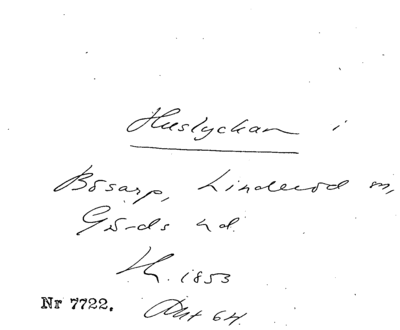 Huslyckan i
Bösarp, Linderöd sn,
Gärds hd.
Lh. 1853
Nr 7722. Akt 64